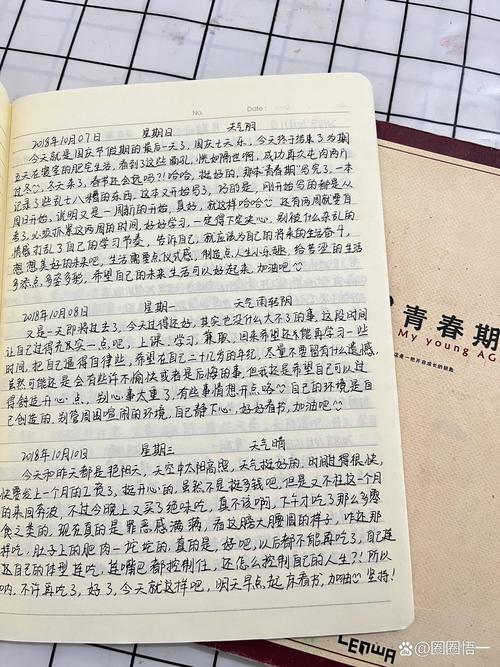 No.    Date
2018年10月07日 星期日 天气阴
今天就是国庆节假期的最后一天了,国庆七天乐,今天终于结束了为期
五天在寝室的肥宅生活,看到了这些面孔,恍如隔世啊,成功再次屯肉两斤
过冬
冬天来了,春节还会远吗?!哈哈,挺好的,那本“青春期”写完了,一本
记录了些七七八八糟的东西,这本又开始写了,巧的是,刚开始写的都是从
周日开始,说明又是一周新的开始,真好,就这样哈哈
还有两周就要自
考了,必须抓紧这两周的时间,好好学习,一定得下定决心,别被什么杂乱的
情感打乱了自己的学习节奏,告诉自己,就应该为自己的将来的生活奋斗,
想想美好的未来吧,生活需要点仪式感,制造点人生小乐趣,给苦涩的生活
多添点多姿多彩,希望自己的未来生活可以好起来,加油吧
2018年10月08日 星期一 天气雨转阴
又是一天即将过去了,今天过得还好,其实也没什么大不了的事,这段时间
让自己过得充实一点吧,上课,学习,兼职,回来希望还能再学习一些
时间,把自己逼得自律些,希望在自己二十几岁的年纪,尽量不要留有什么遗憾,
虽然可能还是会有些许不愉快或者是后悔的事,但我还是希望自己可以过
得创造开心点,别心事太重了,有些事情想开点咯
自己的环境是自
己创造的,别管周围喧闹的环境,自己静下心,好好看书,加油吧
2018年10月10日 星期三 天气晴
今天和昨天都是艳阳天,天空中太阳高照,天气挺好的,时间过得很快,
快要发上一个月的工资了,挺开心的,虽然不是挺多钱吧,但是又不枉这一个月
的来回奔波,不过今晚上又买了绝味吃,真不该啊,下午才吃了那么多零
食之类的,现在真的是罪恶感满满,看这膀大腰圆的样子,咋还那
样吃,肚子上的肥肉一坨坨的,真的是,好吧,以后都不能再吃了,自己连
这自己的体型
连吃,连嘴巴都控制住,还怎么控制自己的人生?!所以
内,不许再吃了,好了,今天就这样吧,明天早点起床看书,加油
坚持!
青春期
My young AG
是一把开启成长的钥匙
LENWA
@圈圈悟一